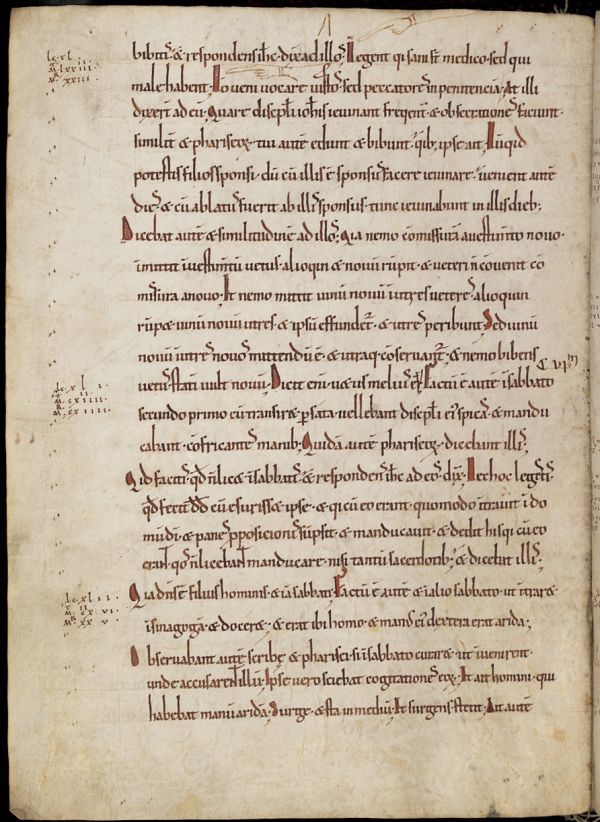 bibitis· & respondens ihc· dix ad illos· Non egent qi sani st medico· sed qui
male habent· Non veni vocare iustos· sed peccatores in penitencia· At illi
dixert ad eu· Quare discipli iohis ieiunant frequent· & obsecrationes faciunt·
similit & phariseor· tui aute edunt & bibunt· qib; ipse ait· Nuqid
potestis filios sponsi· du cu illis e sponsus facere ieiunare· venient aute
dies· & cu ablatus fuerit ab illis sponsus· tunc ieiunabunt in illis dieb;
Dicebat aute & similitudine ad illos· Qia nemo comissura a vestimto novo·
inmittit i vestimtu vetus· alioqin & novu rupit· & veteri n covenit co
missura a novo· Et nemo mittit vinu novu i utres veteres· alioquin
rupet vinu novu utres· & ipsu effundet· & utres peribunt· Sed vinu
novu utres novos mittendu e· & utraq· coservant· & nemo bibens C vim
vetus stati vult novu· Dicit eni· vetus melius e· Factu e aute i sabbato
secundo primo cu transiret p sata· vellebant discipli ei spicas· & mandu
cabant· cofricantes manib; Quida aute phariseor· dicebant illis·
Qid facitis· qd n licet i sabbatis· & respondens ihc ad eos· dix· Nec hoc legistis·
qd fecit dd cu esurisset ipse· & qi cu eo erant· quomodo itravit i do
mu di· & panes pposicionis supsit· & manducavit· & dedit his qi cu eo
erant· qos n licebat manducare· nisi tantu sacerdotib; & dicebat illis·
Qia dns e filius hominis· & ia sabbati· Factu e aute & i alio sabbato· ut itraret
i sinagoga· & doceret· & erat ibi homo· & manus ei dextera erat arida·
Observabant aute scribe & pharisei· si i sabbato curaret· ut ivenirent·
unde accusarent illu· Ipse vero sciebat cogitationes eor· Et ait homini· qui
habebat manu arida· Surge· & sta in mediu· Et surgens stetit· Ait aute